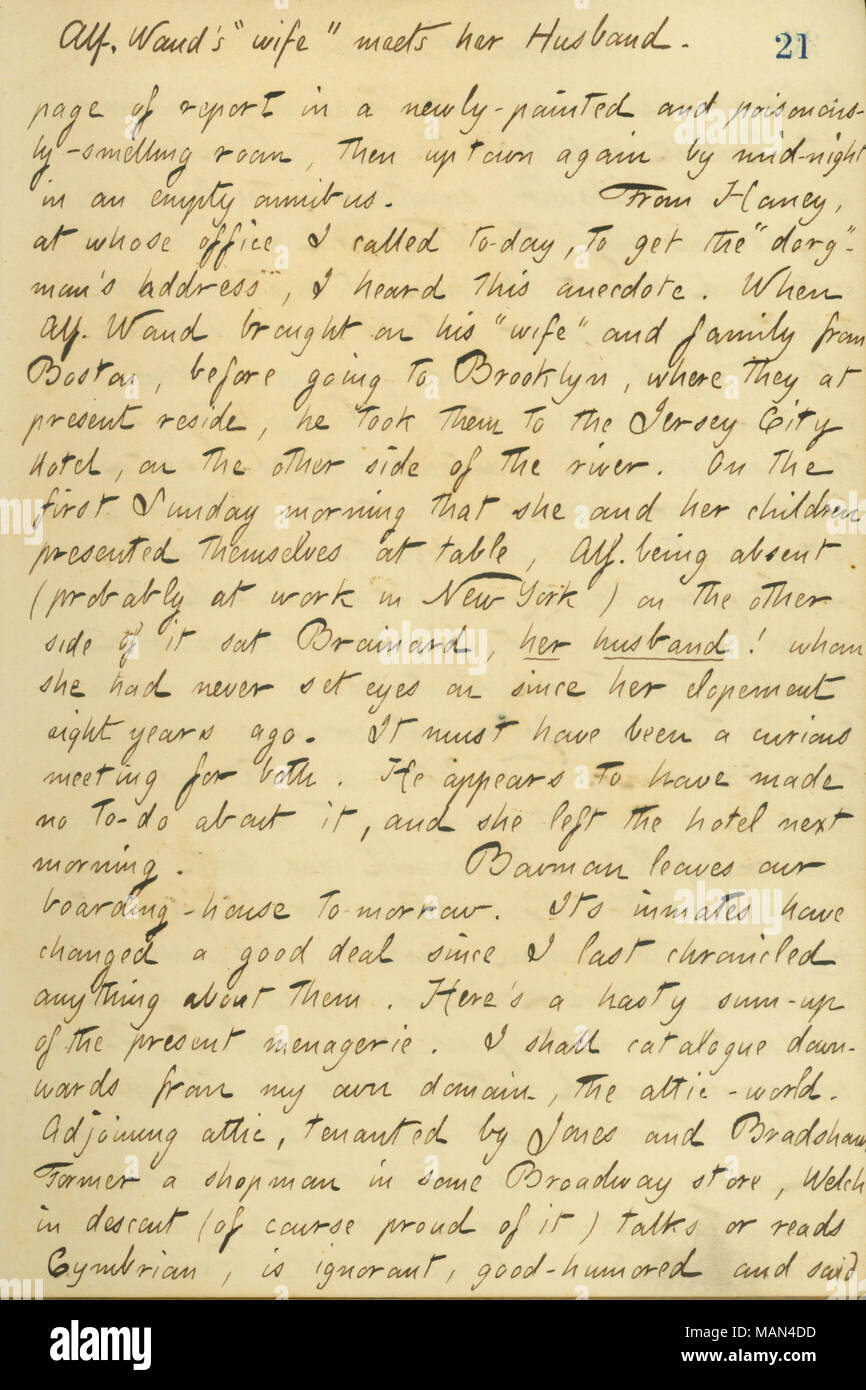 Alf. Waud's "wife" meets her Husband.
21
page of report in a newly-painted and poisonous-
ly-smelling room, then uptown again by mid-night
in an empty omnibus. From Haney,
at whose office I called to-day, to get the "dorg"-
man's address, I heard this anecdote. When
Alf. Waud brought on his "wife" and family from
Boston, before going to Brooklyn, where they at
present reside, he took them to the Jersey City
Hotel, on the other side of the river. On the
first Sunday morning that she and her children
presented themselves at table, Alf. being absent
(probably at work in New York) on the other
side of it sat Brainard, her husband! whom
she had never set eyes on since her elopement
eight years ago. It must have been a curious
meeting for both. He appears to have made
no to-do about it, and she left the hotel next
morning. Bawman leaves our
boarding-house to-morrow. Its inmates have
changed a good deal since I last chronicled
anything about them. Here's a hasty sum-up
of the present menagerie. I shall catalogue down-
wards from my own domain, the attic-world.
Adjoining attic, tenanted by Jones and Bradshaw.
Former a shopman in some Broadway store, Welch
in descent (of course proud of it) talks or reads
Cymbrian, is ignorant, good-humored and said
alamy
Image ID: MAN4DD
www.alamy.com